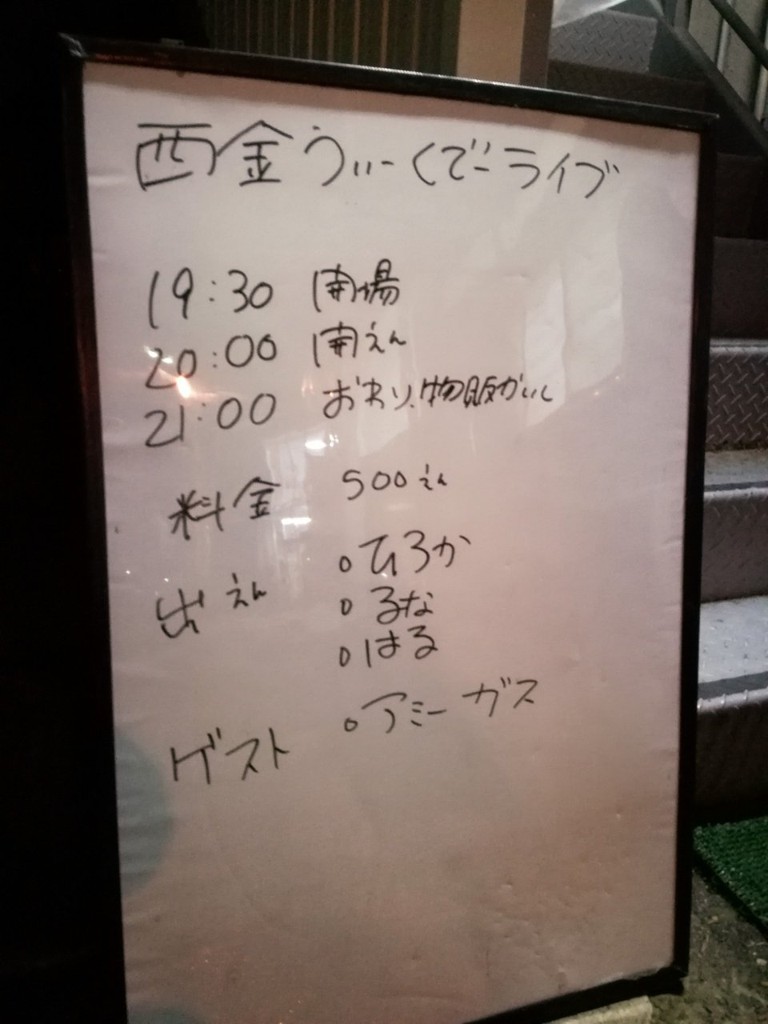 西金うぃーくでーライブ
19:30 開場
20:00 開えん
21:00 おわり、物販かいし
料金 500えん
出えん
○ひろか
○るな
○はる
ゲスト ○アミーガス